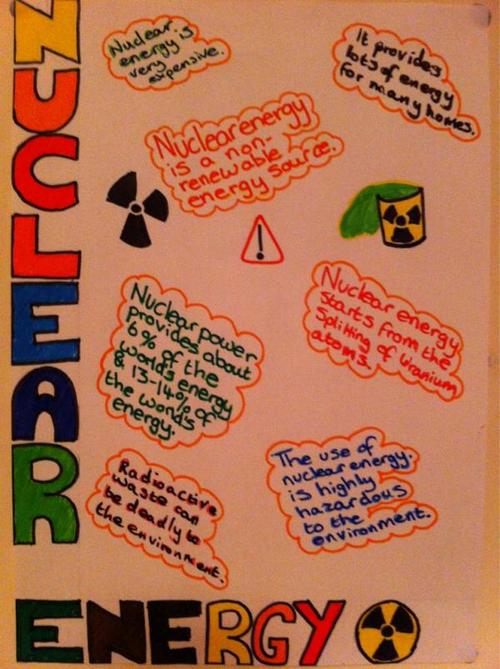 NUCLEAR
Nuclear
energy is
very
expensive.
It provides
lots of energy
for many homes.
Nuclear energy
is a non-
renewable
energy source.
Nuclear power
provides about
6% of the
world's energy
& 13-14% of
the world's
energy.
Nuclear energy
starts from the
splitting of uranium
atoms.
Radioactive
waste can
be deadly to
the environment.
The use of
nuclear energy.
is highly
hazardous
to the
environment.
ENERGY